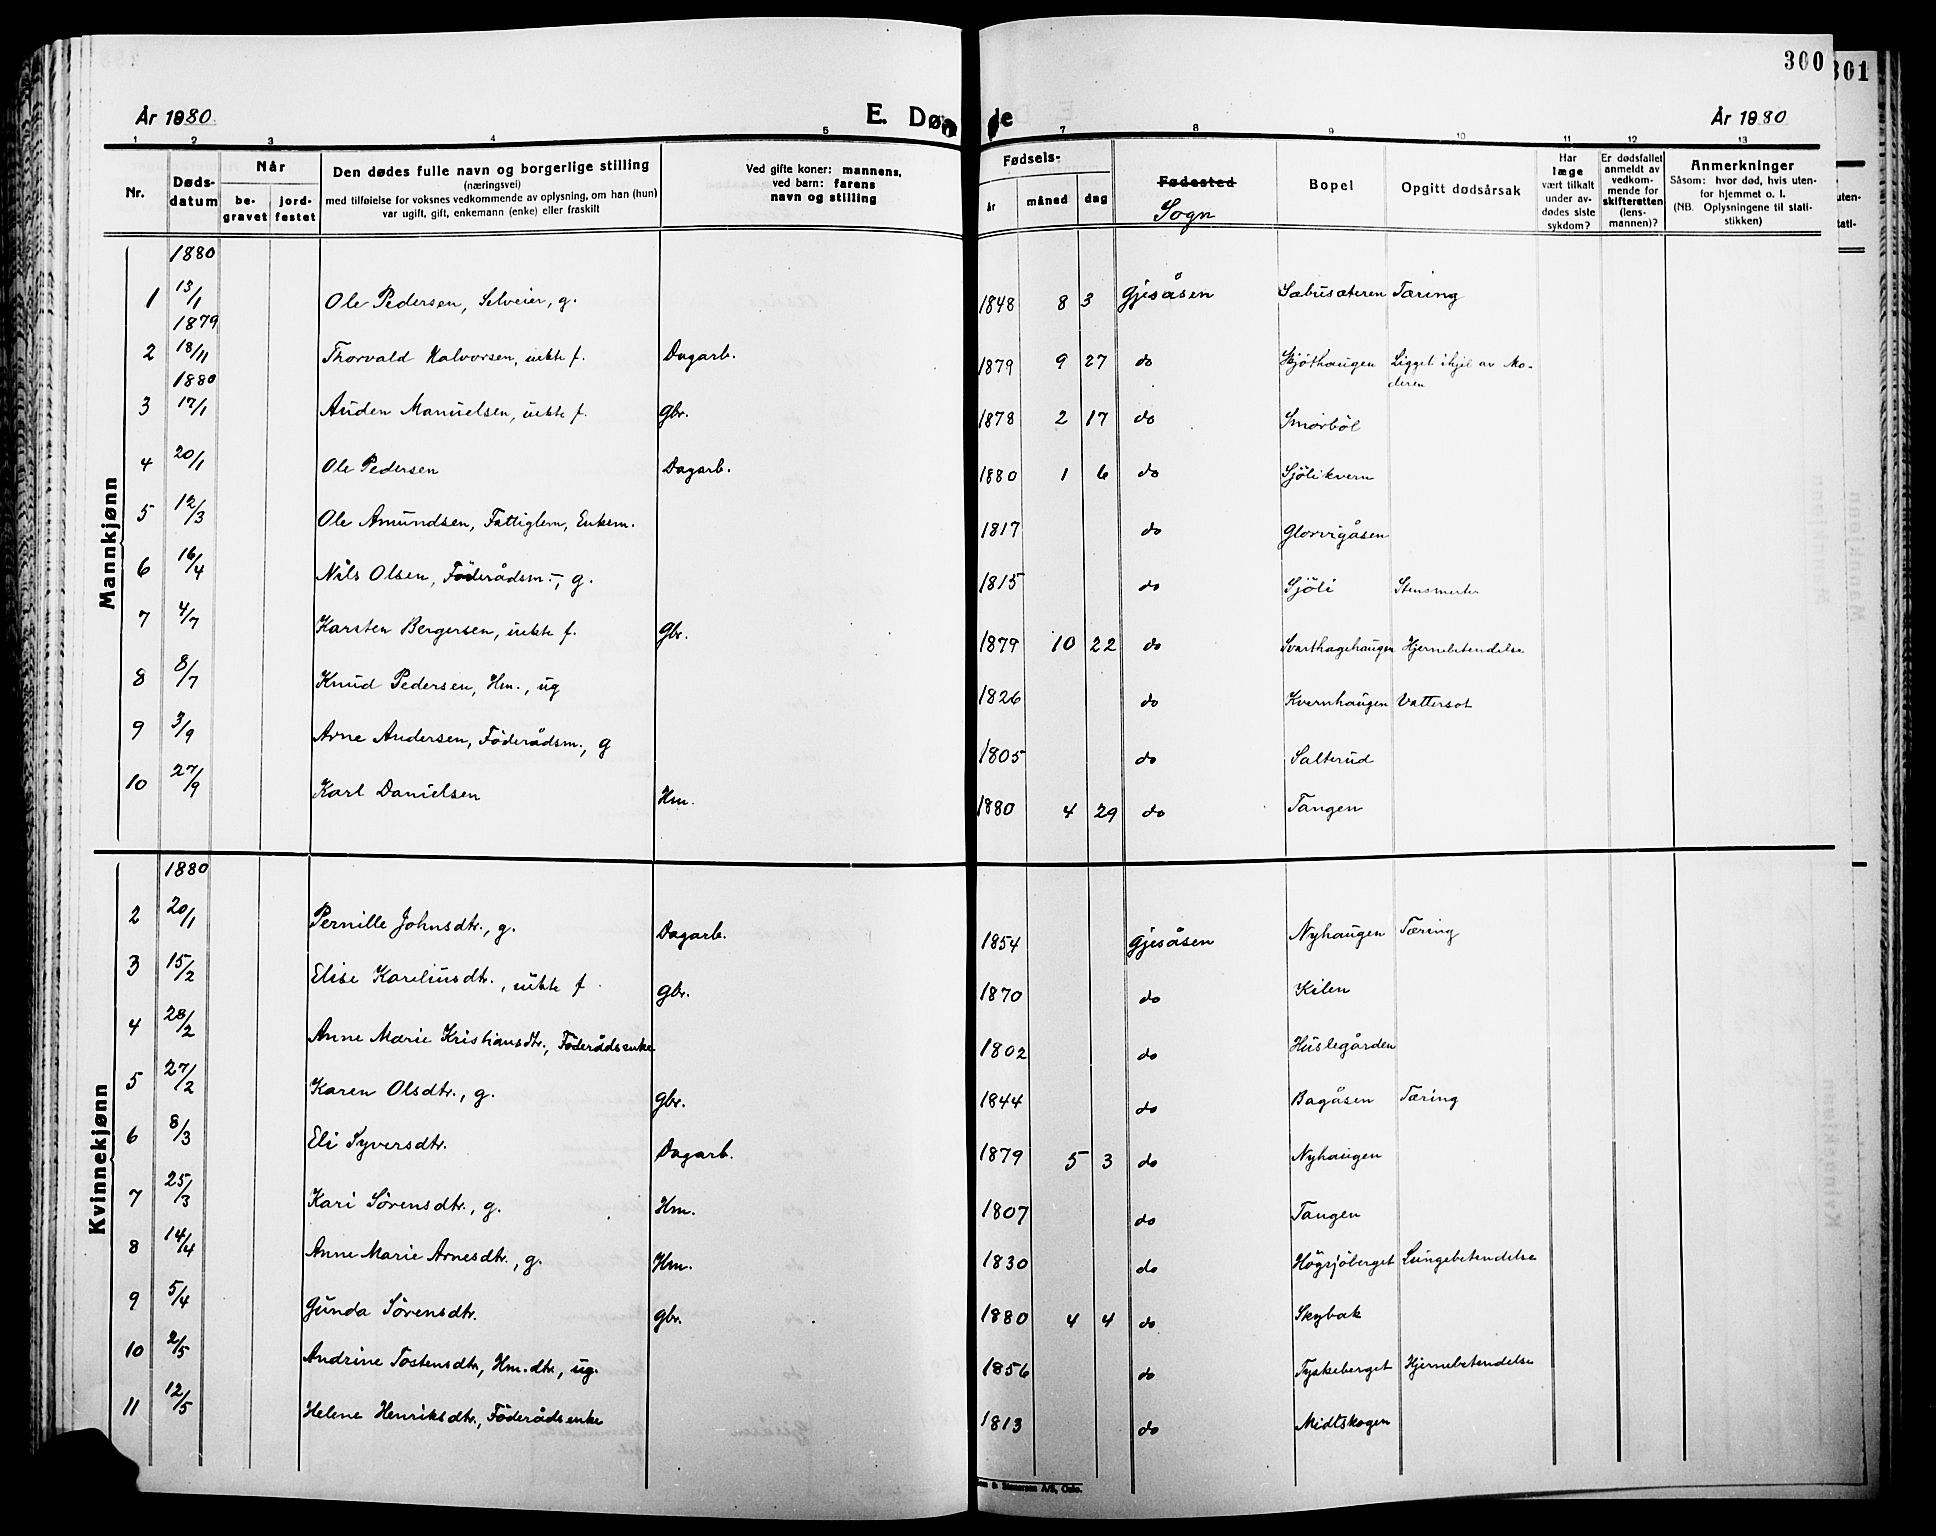 300
301
År 1880.
E. Dø
de
År 1880
1 2 3 4 5 7 8 9 10 11 12 13
Nr.
Døds-
datum
Når
be-
gravet
jord-
festet
Den dødes fulle navn og borgerlige stilling
(næringsvei)
med tilføielse for voksnes vedkommende av oplysning, om han (hun)
var ugift, gift, enkemann (enke) eller fraskilt
Ved gifte koner: mannens,
ved barn: farens
navn og stilling
Fødsels-
år måned dag
Fødested
Sogn
Bopel
Opgitt dødsårsak
Har
læge
vært tilkalt
under av-
dødes siste
sykdom?
Er dødsfallet
anmeldt av
vedkom-
mende for
skifteretten
(lens-
mannen)?
Anmerkninger
Såsom: hvor død, hvis uten-
for hjemmet o. l.
(NB. Oplysningene til stati-
stikken)
uten-
stati-
Mannkjønn
1880
1 13/1 Ole Pedersen, Selveier, g. 1848 8 3 Gjesåsen Sæbusæteren Tæring
1879
2 18/11 Thorvald Halvorsen, uekte f. Dagarb. 1879 9 27 do Skjöthaugen Ligget ihjel av Mo-
deren
1880
3 17/1 Auden Manuelsen, uekte f. Gbr. 1878 2 17 do Smörböl
4 20/1 Ole Pedersen Dagarb. 1880 1 6 do Sjölikvern
5 12/3 Ole Amundsen, Fattiglem, Enkem. 1817 do Glorvigåsen
6 16/4 Nils Olsen, Föderådsm., g. 1815 do Sjöli Stensmerter
7 4/7 Karsten Bergersen, uekte f. Gbr. 1879 10 22 do Svarthagehaugen Hjernebetendelse
8 8/7 Knud Pedersen, Hm., ug 1826 do Kvernhaugen Vattersot
9 3/9 Arne Andersen, Föderådsm., g 1805 do Salterud
10 27/9 Karl Danielsen Hm. 1880 4 29 do Tangen
Kvinnekjønn
1880
2 20/1 Pernille Johnsdtr., g. Dagarb. 1854 Gjesåsen Nyhaugen Tæring
3 15/2 Elise Kareliusdtr., uekte f Gbr. 1870 do Kilen
4 28/2 Anne Marie Kristiansdtr., Föderådsenke 1802 do Huslegården
5 27/2 Karen Olsdtr., g. Gbr. 1844 do Bagåsen Tæring
6 8/3 Eli Syversdtr. Dagarb. 1879 5 3 do Nyhaugen
7 25/3 Kari Sörensdtr., g. Hm. 1807 do Tangen
8 14/4 Anne Marie Arnesdtr., g. Hm. 1830 do Högsjöberget Lungebetendelse
9 5/4 Gunda Sörensdtr. Gbr. 1880 4 4 do Skybak
10 2/5 Andrine Tostensdtr, Hm.dtr., ug. 1856 do Tyskeberget Hjernebetendelse
11 12/5 Helene Henriksdtr., Föderådsenke 1813 do Midtskogen
A/S, Oslo.